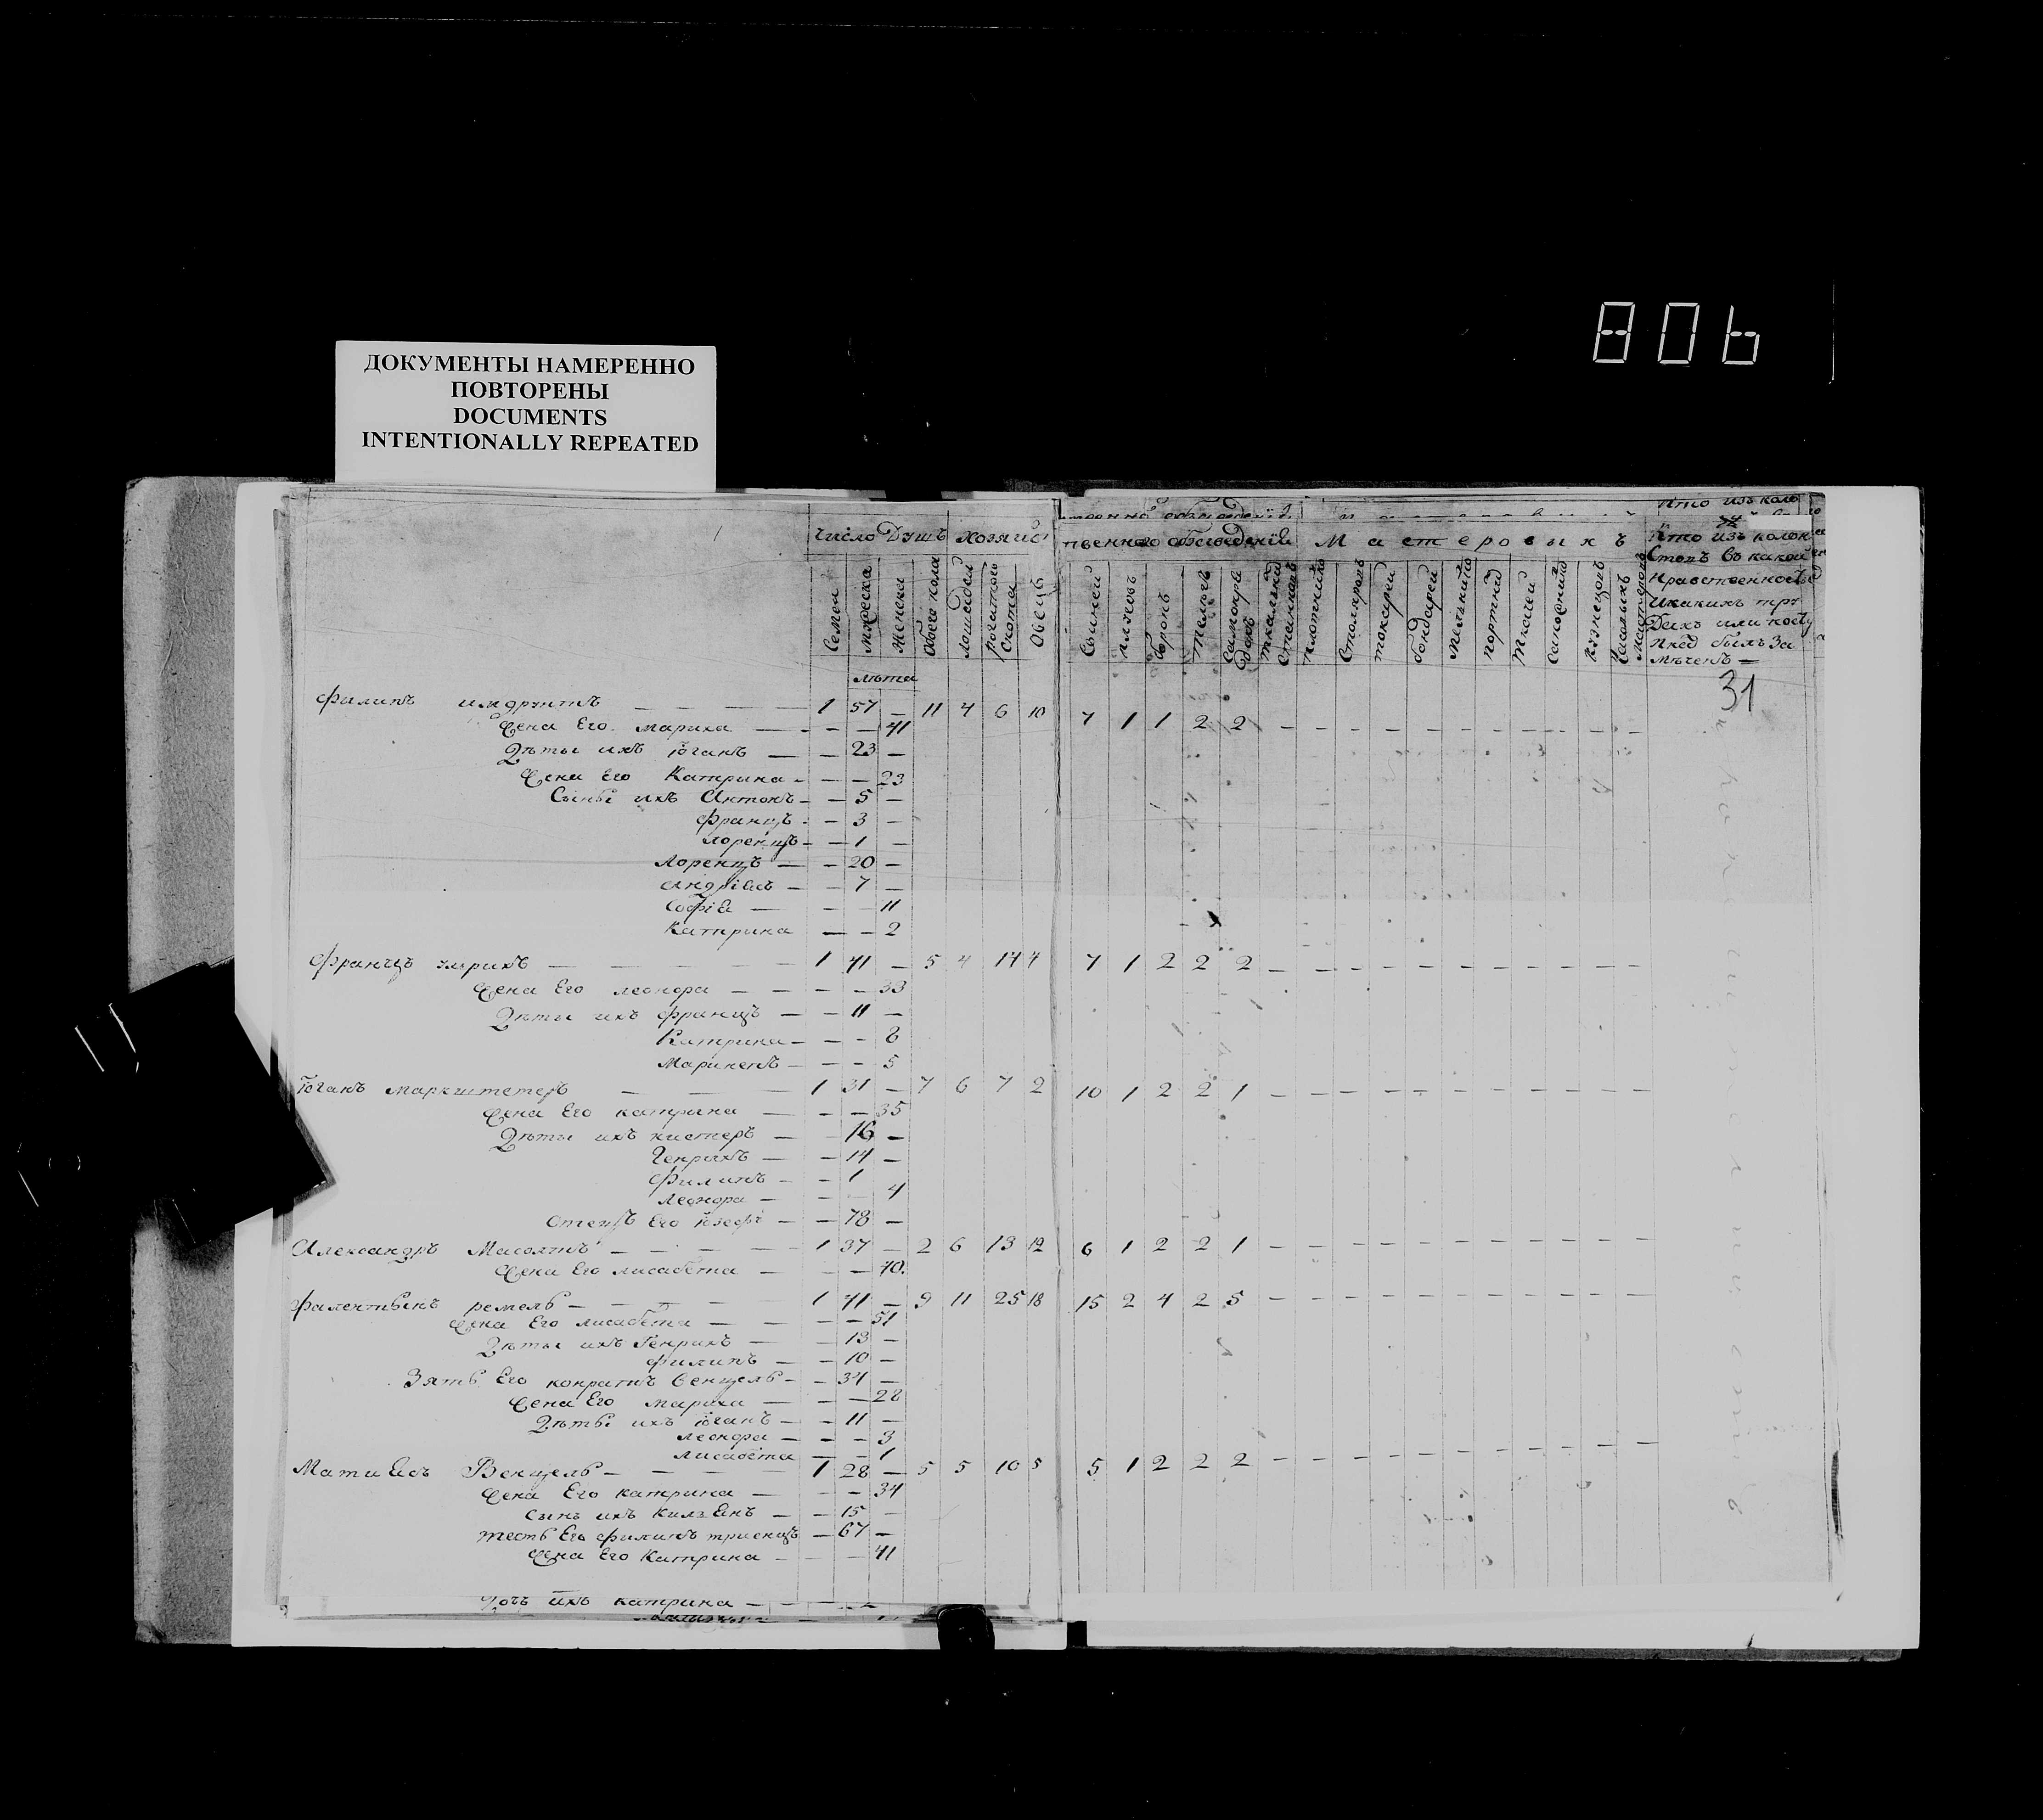 806
ДОКУМЕНТЫ НАМЕРЕННО
ПОВТОРЕНЫ
DOCUMENTS
INTENTIONALLY REPEATED
число Душъ хозяйс твенного обзаведенiя Мастеровыхъ
Кто изъ колон
Стовъ въ какой
Нравственност
Икакихъ тру
Дахъ или
Пред былъ За
мѣченъ —
Семей Мужеска Женска Обоего пола Лошадей рогатого Скота Овецъ Свиней плуговъ боронъ Телегъ Самопрядокъ ткальныхъ Становъ плотниковъ Столяровъ токарей бондарей Мельниковъ портныхъ Ткачей Сапожниковъ Кузнецовъ
лѣта
31
Филипъ — — — — 1 57 — 11 4 6 10 7 1 1 2 2 — — — — — — — — — — —
Жена Его Мариха — — — 41
Дѣты ихъ Юганъ — — 23 —
Жена Его Катрина — — — 23
Сыны ихъ Антонъ — — 5 —
Францъ — — 3 —
Лоренцъ — — 1 —
Лоренцъ — — 20 —
Андрiасъ — — 7 —
Софiя — — — 11
Катрина — — 2
Францъ улрихъ — — — — — 1 41 — 5 4 14 4 7 1 2 2 2 — — — — — — — — — — —
Жена Его леонора — — — — 33
Дѣты ихъ францъ — — 11 —
Катрина — — — 8
Марикенъ — — — 5
Юганъ Маркштетеръ — — — 1 31 — 7 6 7 2 10 1 2 2 1 — — — — — — — — — — —
Жена Его катрина — — — 35
Дѣты ихъ кистеръ — — 16 —
Генрихъ — — 14 —
Филипъ — — 1
Леонора — — — 4
Отецъ Его Юзефъ — — 78 —
Александръ — — — — 1 37 — 2 6 13 12 6 1 2 2 1 — — — — — — — — — — —
Жена Его лисабета — — — 40
Фалентѣенъ ремель — — — — 1 41 — 9 11 25 18 15 2 4 2 5 — — — — — — — — — — —
Жена Его лисабета — — — — 51
Дѣты ихъ Генрихъ — — 13 —
Филипъ — — 10 —
Зять Его конратъ венцель — — 34 —
Жена Его мариха — — — 28
Дѣты ихъ Юганъ — — 11 —
Леонора — — — 3
Лисабета — — 1
Матиасъ Венцель — — — — 1 28 — 5 5 10 5 5 1 2 2 2 — — — — — — — — — — —
Жена Его катрина — — — 34
Сынъ ихъ — — 15 —
тесть Его филипъ — 67 —
Жена Его Катрина — — — 41
Дочь ихъ катрина — — — —